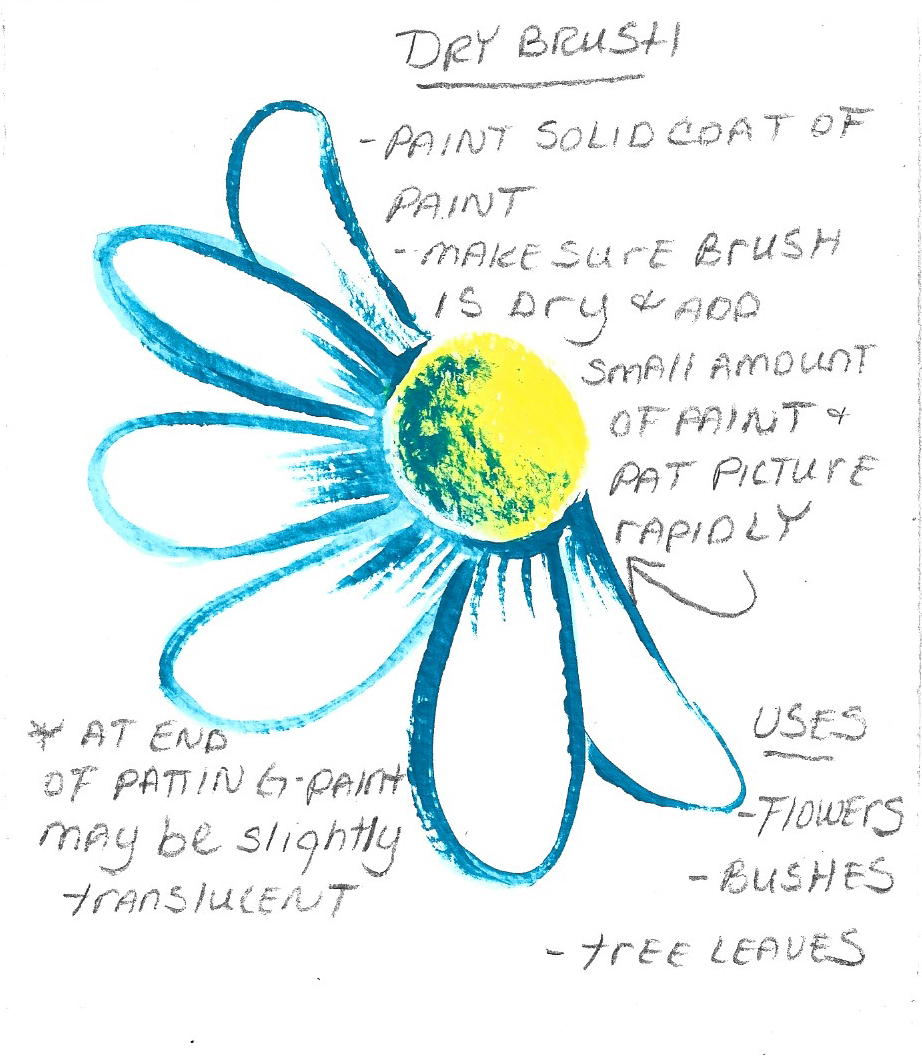 DRY BRUSH
- PAINT SOLID COAT OF
PAINT
- MAKE SURE BRUSH
IS DRY & ADD
SMALL AMOUNT
OF PAINT &
PAT PICTURE
RAPIDLY
* AT END
OF PATTING-PAINT
MAY BE slightly
TRANSLUCENT
USES
- FLOWERS
- BUSHES
- TREE LEAVES